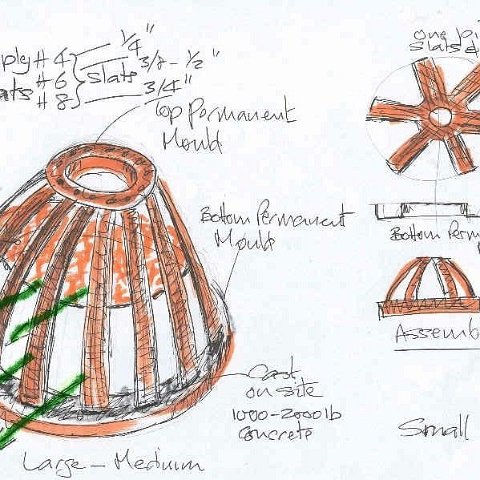 ply #4 1/4"
#6 slats 3/8 - 1/2"
ats #8 3/4"
Top Permanent
Mould
Bottom Permanent
Mould
Cast
on site
1000-2000lb
Concrete
Large - Medium
one pi
Slats &
Bottom Perm
Assemb
Small